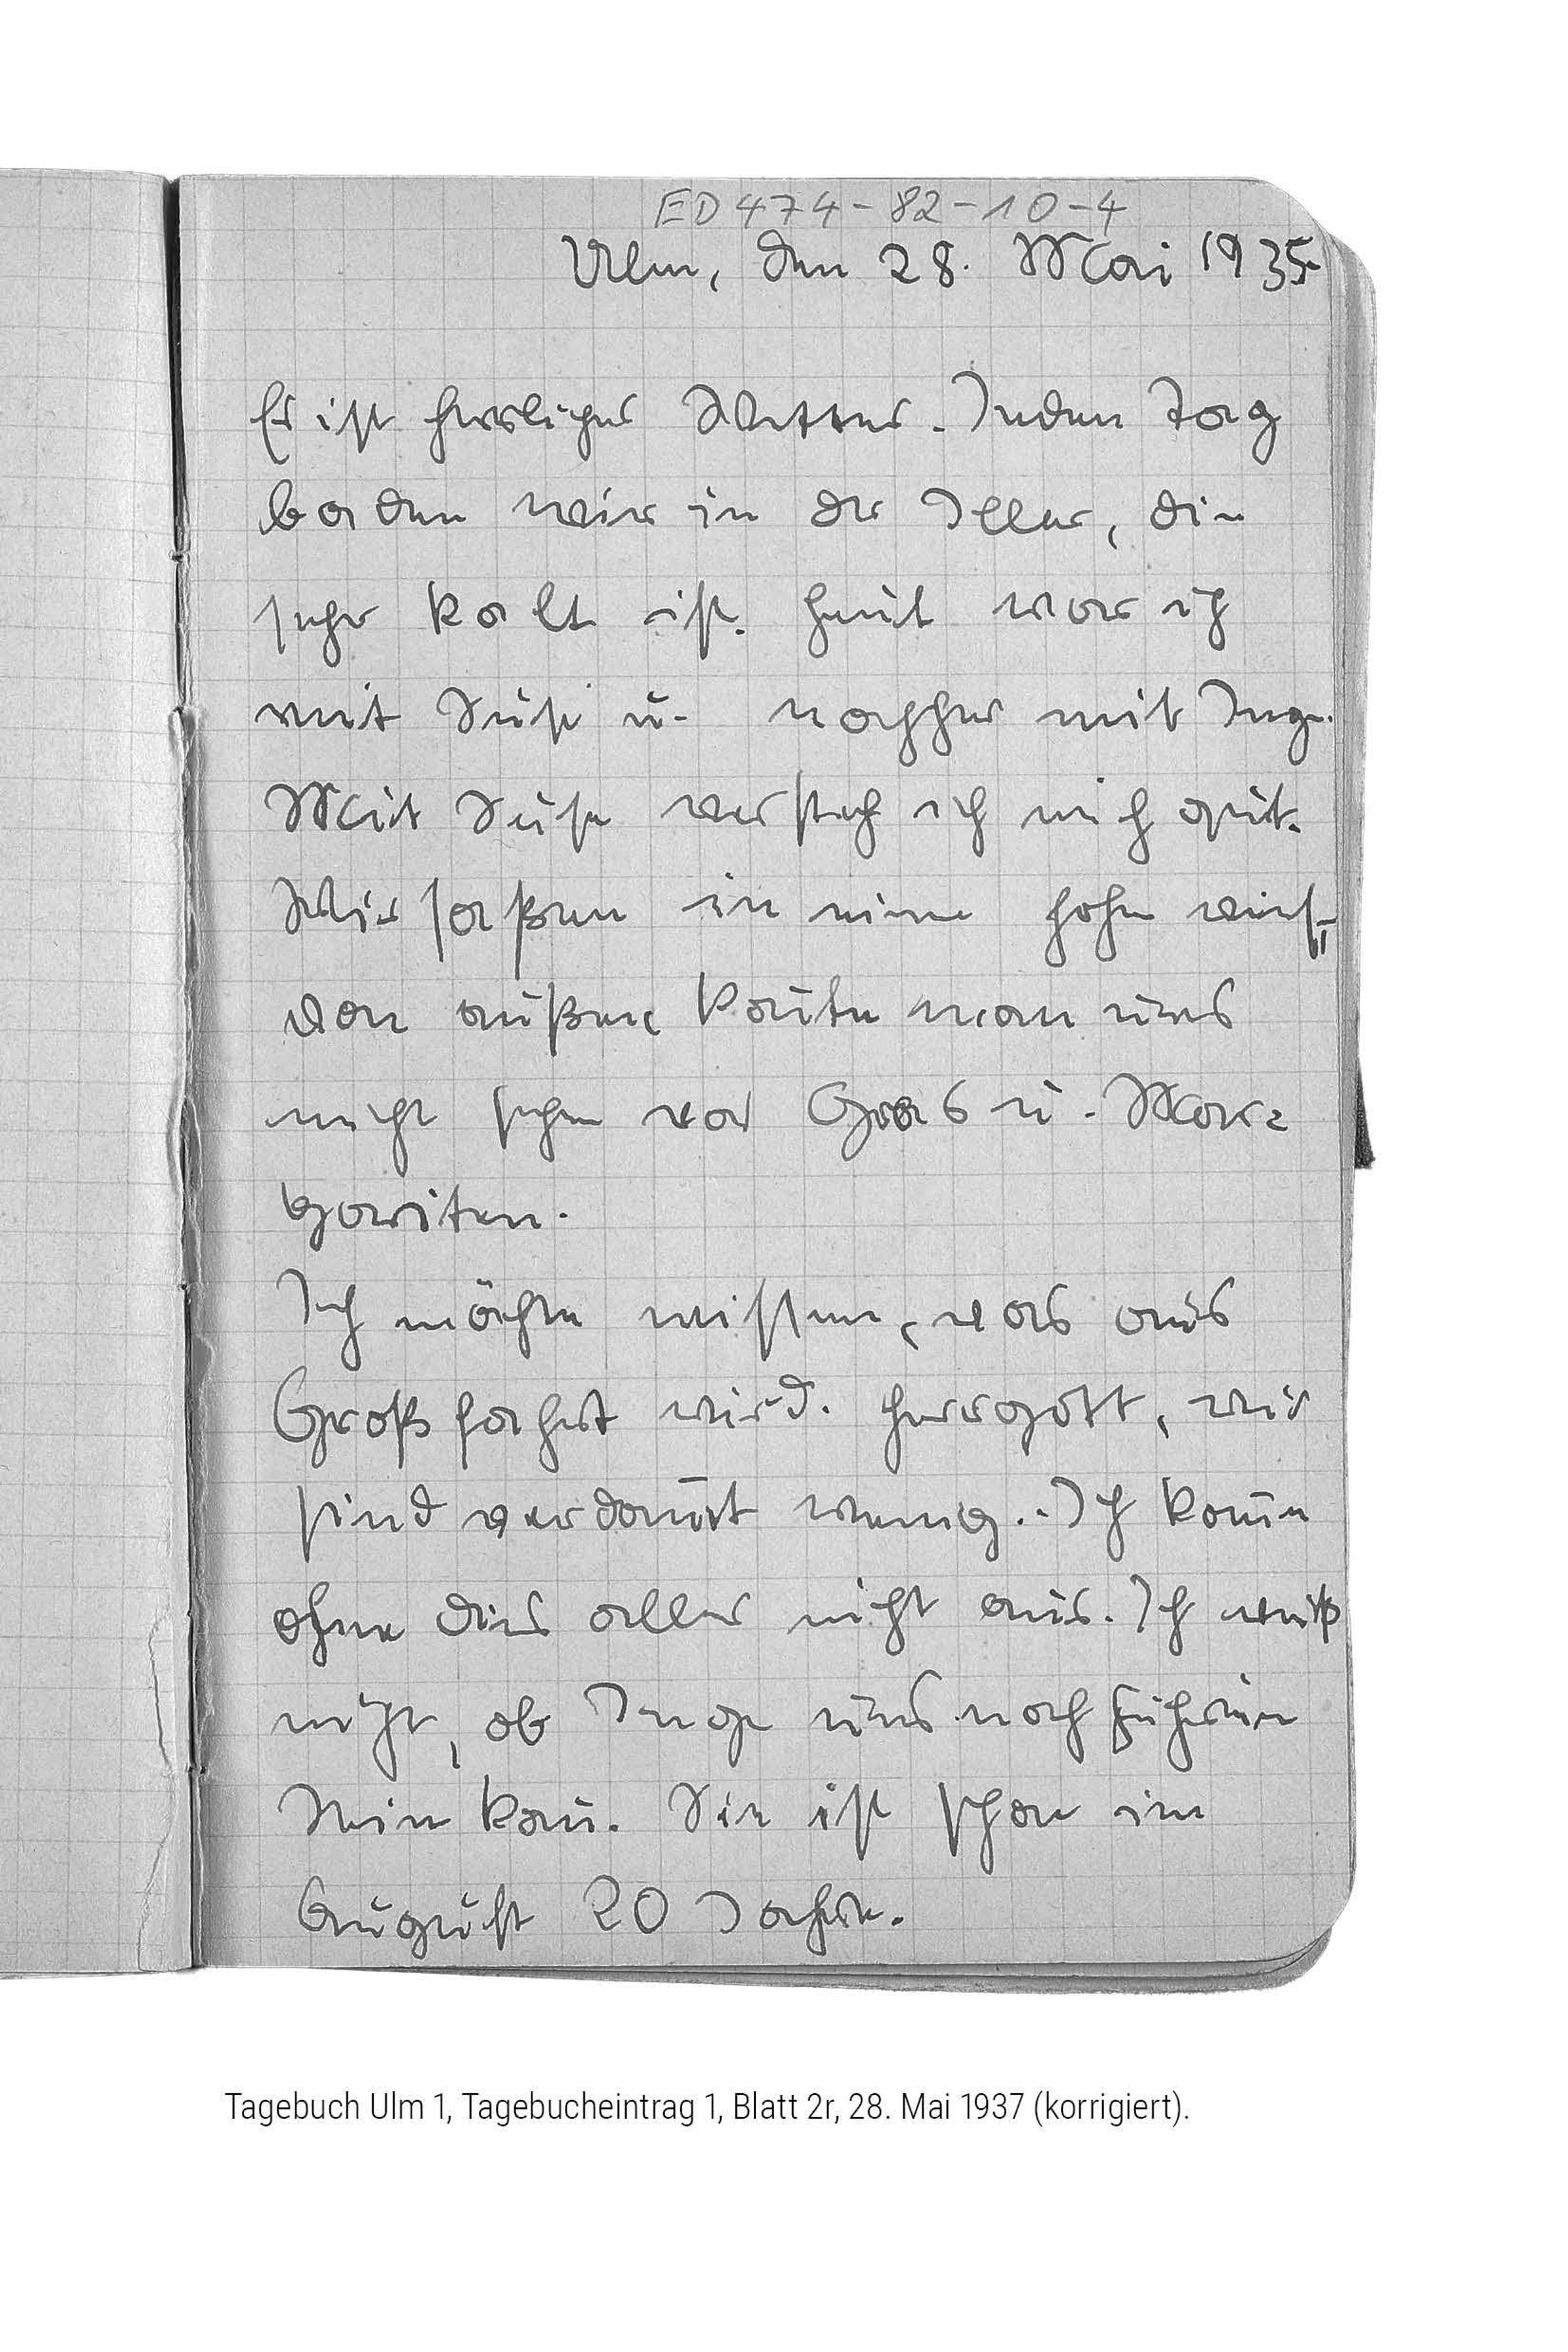 ED 474-82-10-4
Ulm, den 28. Mai 1935
Es ist herrliches Wetter. Jeden Tag
baden wir in der Iller, die
sehr kalt ist. Heut war ich
mit Suse u. nachher mit Inge.
Mit Suse versteh ich mich gut.
Wir saßen in einer hohen Wies,
von außen kon̄te man uns
nicht sehen vor Gras u. Mar-
gariten.
Ich möchte wissen, was aus
Großfahrt wird. Herrgott, wir
sind verdam̄t wenig. Ich kom̄e
ohne dies alles nicht aus. Ich weiß
nicht, ob Inge uns noch Führerin
sein kan̄. Sie ist schon im
August 20 Jahre.
Tagebuch Ulm 1, Tagebucheintrag 1, Blatt 2r, 28. Mai 1937 (korrigiert).